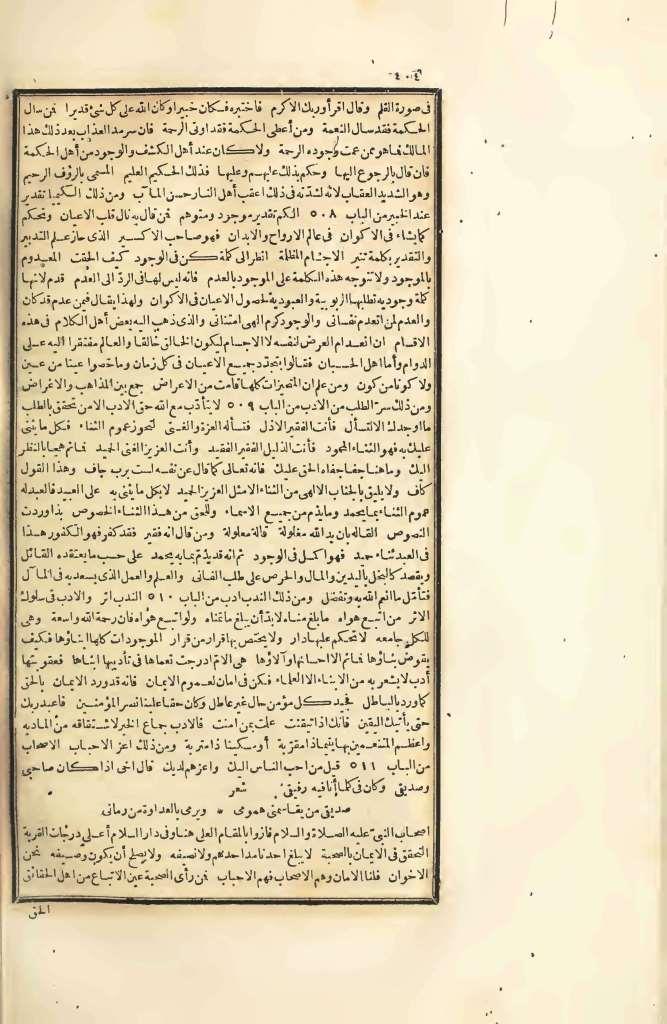 ٤٠٤
فى صورة القلم وقال اقرأ وربك الاكرم فاختبره فكان خبيرا وكان الله على كل شئ قديرا فمن سال
الحكمة فقد سال النعمة ومن أعطى الحكمة فقد اوتى الرحمة فان سرمد العذاب بعد ذلك هذا
المالك فما هو ممن عمت وجوده الرحمة ولا كان عند أهل الكشف والوجود من أهل الحكمة
فان قال بالرجوع اليها وحكم بذلك عليهم وعليها فذلك الحكيم العليم المسمى بالرؤف الرحيم
وهو الشديد العقاب لانه لشدته فى ذلك اعقب أهل النار حسن المآب ومن ذلك الكيميا تقدير
عند الخبير من الباب ٥٠٨ الكم تقدير موجود ومتوهم فمن قال به نال قلب الاعيان وتحكم
كما يشاء فى الاكوان فى عالم الارواح والابدان فهو صاحب الاكسير الذى حاز علم التدبير
والتقدير بكلمة تنير الاجسام المظلمة انظر الى كلمة كن فى الوجود كيف الحقت المعدوم
بالموجود ولا تتوجه هذه الكلمة على الموجود بالعدم فانه ليس لها فى الرد الى العدم قدم لانها
كلمة وجودية تطلبها الربوبية والعبودية لحصول الاعيان فى الاكوان ولهذا يقال فيمن عدم قد كان
والعدم لمن انعدم نفسانى والوجود كرم الهى امتنانى والذى ذهب اليه بعض أهل الكلام فى هذه
الاقسام ان انعدام العرض لنفسه لا الاجسام ليكون الخالق خالقا والعالم مفتقرا اليه على
الدوام وأما اهل الحسبان فقالوا بتجدد جميع الاعيان فى كل زمان وما خصوا عينا من عين
ولا كونا من كون ومن علم ان المتميزات كلها قامت من الاعراض جمع بين المذاهب والاغراض
ومن ذلك سر الطلب من الادب من الباب ٥٠٩ لا يتأدب مع الله حق الادب الا من تحقق بالطلب
ما اوجدك الا لتسأل فأنت الفقير الاذل فتسأله العزة والغنى لتحوز عموم الثناء فكل ما يثنى
عليك به فهو الثناء المحمود فأنت الذليل الفقير الفقيد وأنت العزيز الغنى الحميد فما ثم هجا بالنظر
اليك وما هنا جفا جفاه الحق عليك فانه تعالى كما قال عن نفسه لست برب جاف وهذا القول
كاف ولا يليق بالجناب الالهى من الثناء الا مثل العزيز الحميد لا بكل ما يثنى به على العبيد فالعبد له
عموم الثناء بما يحمد وما يذم من جميع الاسماء وللحق من هذا الثناء الخصوص بذا وردت
النصوص القاله بان يد الله مغلولة قالة معلولة ومن قال انه فقير فقد كفر فهو الكفور هذا
فى العبد ثناء حمد فهو اكمل فى الوجود ثم انه قد يذم بما به يحمد على حسب ما يعتقده القائل
ويقصد كالبخل باليدين والمال والحرص على طلب الفانى والعلم والعمل الذى يسعد به فى المآل
فتأمل ما انعم الله به وتفضل ومن ذلك الندب ادب من الباب ٥١٠ الندب اثر والادب فى سلوك
الاثر من اتبع هواه ما بلغ مناه لا بد أن يبلغ ما يتمناه ولو اتبع هواه فان رحمة الله واسعة وهى
للكل جامعه لا تحكم عليها دار ولا يختص بها قرار من قرار الموجودات كلها ابناؤها فكيف
يقوض بناؤها فما ثم الا احسانها وآلاؤها هى الام ادرجت نعماها فى تأديبها ابناها فعقوبتها
أدب لا يشعر به من الابناء الا العلماء فكن فى امان لعموم الايمان فانه قد ورد الايمان بالحق
كما ورد بالباطل فجيد كل مؤمن حال غير عاطل وكان حقا علينا نصر المؤمنين فاعبد ربك
حتى يأتيك اليقين فانك اذا تيقنت علمت بمن امنت فالادب جماع الخير لاشتقاقه من المادبه
واعظم المتنعمين بها يتيما ذا مقربة أو مسكينا ذا متربة ومن ذلك اعز الاحباب الاصحاب
من الباب ٥١١ قيل من احب الناس اليك واعزهم لديك قال اخى اذا كان صاحبى
وصديقى وكان فى كل ما أنا فيه رفيقى شعر
صديق من يقاسمنى همومى * ويرمى بالعداوة من رمانى
اصحاب النبى عليه الصلاة والسلام فازوا بالمقام العلى هنا وفى دار السلام أعلى درجات القربة
التحقق فى الايمان بالصحبة لا يبلغ احدنا مد احدهم ولا نصيفه ولا يصلح أن يكون وصيفه نحن
الاخوان فلنا الامان وهم الاصحاب فهم الاحباب فمن رأى الصحبة عين الاتباع من اهل الحقائق
الحق